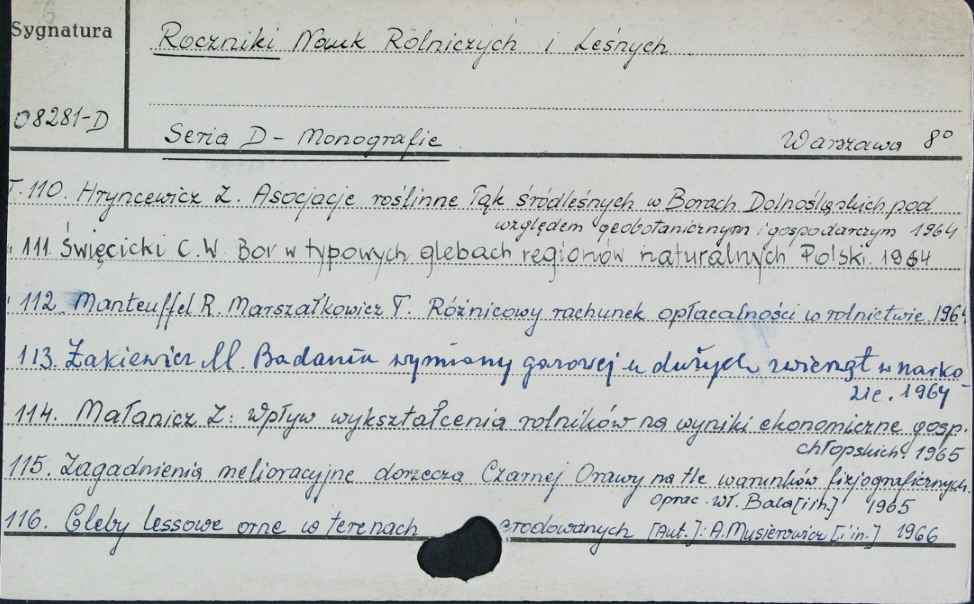 Sygnatura
Roczniki Nauk Rolniczych i Leśnych
08281-D
Seria D - Monografie Warszawa 8°
T. 110. Hryncewicz Z. Asocjacje roślinne łąk śródleśnych w Borach Dolnośląskich pod
względem geobotanicznym i gospodarczym 1964
" 111. Święcicki C.W. Bor w typowych glebach regionów naturalnych Polski. 1964
" 112. Manteuffel R. Marszałkowicz T. Różnicowy rachunek opłacalności w rolnictwie. 196
113. Żakiewicz M. Badania wymiany gazowej u dużych zwierząt w narko-
zie. 1964
114. Małanicz Z: Wpływ wykształcenia rolników na wyniki ekonomiczne gosp.
chłopskich. 1965
115. Zagadnienia melioracyjne dorzecza Czarnej Orawy na tle warunków fizjograficznych.
oprac. Wł. Bala [i in.] 1965
116. Gleby lessowe orne w terenach erodowanych [Aut.]: A. Musierowicz [i in.] 1966